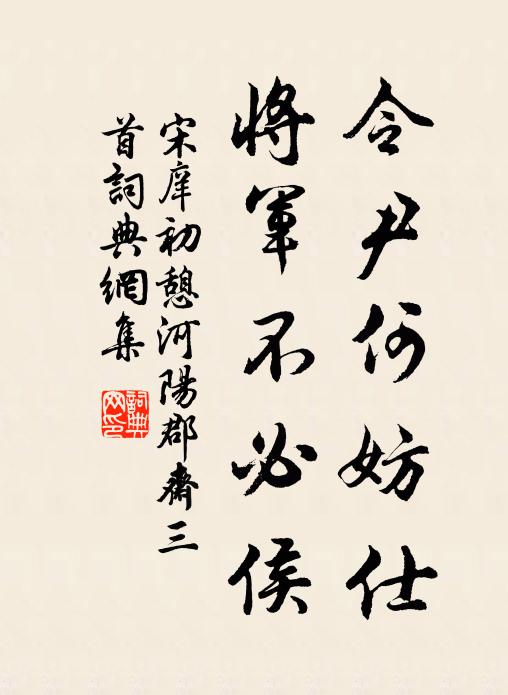 令尹何妨仕
將軍不必侯
宋庠初憩河陽郡齋三
首詞典網集
詞典网印